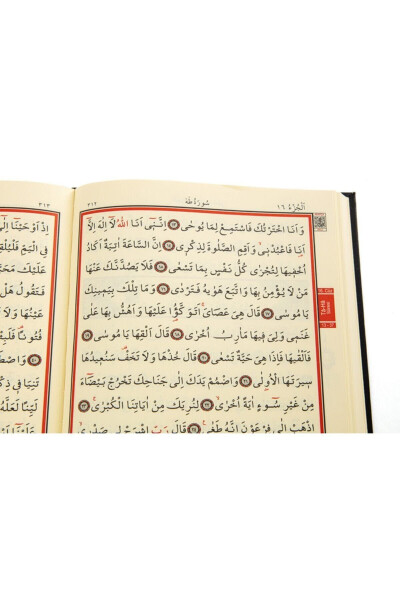 اَلْجُزْءُ ١٦ سُورَةُ طٰهٰ ٣١٢
وَاَنَا اخْتَرْتُكَ فَاسْتَمِعْ لِمَا يُوحٰى ﴿١٣﴾ اِنَّنٖٓي اَنَا اللّٰهُ لَٓا اِلٰهَ اِلَّٓا
اَنَا۬ فَاعْبُدْنٖيۙ وَاَقِمِ الصَّلٰوةَ لِذِكْرٖي ﴿١٤﴾ اِنَّ السَّاعَةَ اٰتِيَةٌ اَكَادُ
اُخْفٖيهَا لِتُجْزٰى كُلُّ نَفْسٍ بِمَا تَسْعٰى ﴿١٥﴾ فَلَا يَصُدَّنَّكَ عَنْهَا
مَنْ لَا يُؤْمِنُ بِهَا وَاتَّبَعَ هَوٰيهُ فَتَرْدٰى ﴿١٦﴾ وَمَا تِلْكَ بِيَمٖينِكَ
يَا مُوسٰى ﴿١٧﴾ قَالَ هِيَ عَصَايَۚ اَتَوَكَّؤُ۬ا عَلَيْهَا وَاَهُشُّ بِهَا عَلٰى
غَنَمٖي وَلِيَ فٖيهَا مَاٰرِبُ اُخْرٰى ﴿١٨﴾ قَالَ اَلْقِهَا يَا مُوسٰى ﴿١٩﴾
فَاَلْقٰيهَا فَاِذَا هِيَ حَيَّةٌ تَسْعٰى ﴿٢٠﴾ قَالَ خُذْهَا وَلَا تَخَفْ سَنُعٖيدُهَا
سٖيرَتَهَا الْاُو۫لٰى ﴿٢١﴾ وَاضْمُمْ يَدَكَ اِلٰى جَنَاحِكَ تَخْرُجْ بَيْضَٓاءَ
مِنْ غَيْرِ سُٓوءٍ اٰيَةً اُخْرٰىۙ ﴿٢٢﴾ لِنُرِيَكَ مِنْ اٰيَاتِنَا الْكُبْرٰىۚ ﴿٢٣﴾
اِذْهَبْ اِلٰى فِرْعَوْنَ اِنَّهُ طَغٰى ﴿٢٤﴾ قَالَ رَبِّ اشْرَحْ لٖي صَدْرٖيۙ
٣١٣
اِذْ اَوْحَيْنَٓا اِلٰٓى
فِي الْيَمِّ فَلْيُلْقِهِ
عَلَيْكَ مَحَبَّةً
فَتَقُولُ هَلْ
عَيْنُهَا وَلَا
فُتُونًا فَلَبِثْتَ